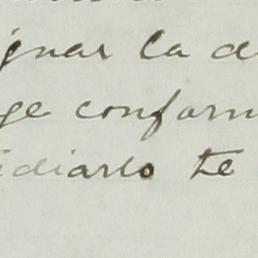 gnar la d
ge conform
diarlo te